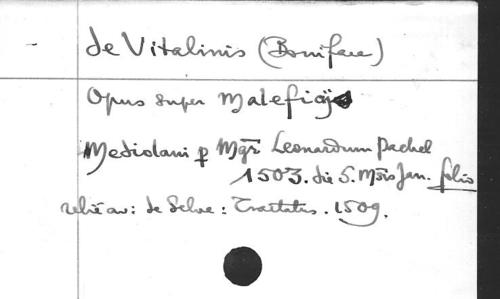 - de Vitalinis (Boniface)
Opus super Maleficijs
Mediolani p Mgr Leonardum Pachel
1503. die 5. Msis Jan. folio
relié av: de Selve: Tractatus. 1509.